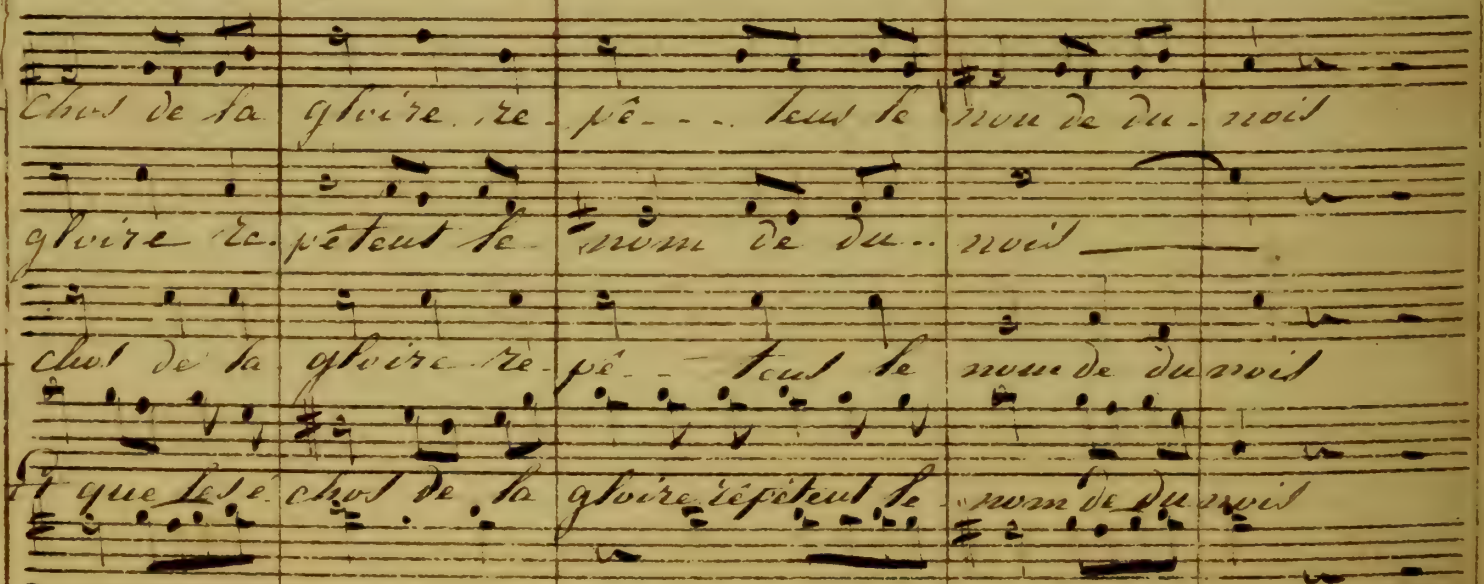 chos de la gloire ré- pè- - - tent le nom de du- nois
gloire ré- pètent le nom de du- - nois
chos de la gloire ré- pè- - tent le nom de du nois
que les é- chos de la gloire répètent le nom de du nois